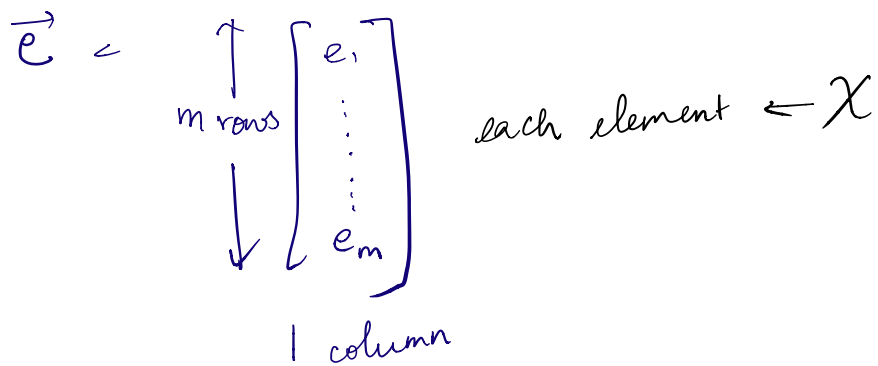 e⃗ <
m rows
e₁
⋮
eₘ
each element ← χ
1 column